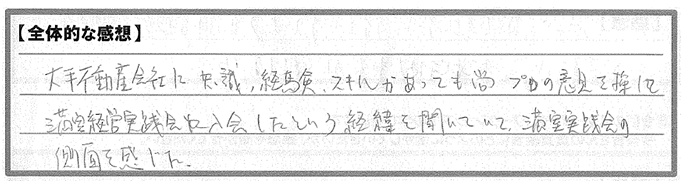 【全体的な感想】
大手不動産会社に 知識,経験,スキルがあっても尚 プロの意見を探して
満室経営実践会に入会したという経緯を聞いていて、満室実践会の
側面を感じた。